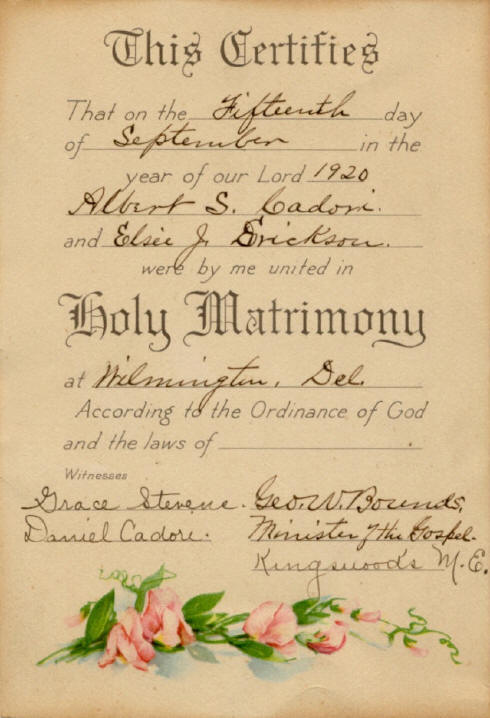 This Certifies
That on the Fifteenth day
of September in the
year of our Lord 1920
Albert S. Cadori.
and Elsie J. Erickson.
were by me united in
Holy Matrimony
at Wilmington, Del.
According to the Ordinance of God
and the laws of
Witnesses
Grace Stevens. Geo. W. Bounds,
Daniel Cadori. Minister of the Gospel.
Kingswoods M.E.